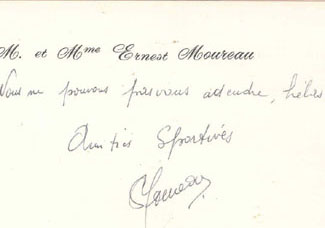 M. et Mme Ernest Moureau
Nous ne pouvons pas vous attendre, hélas
Amitiés Sportives
EMoureau